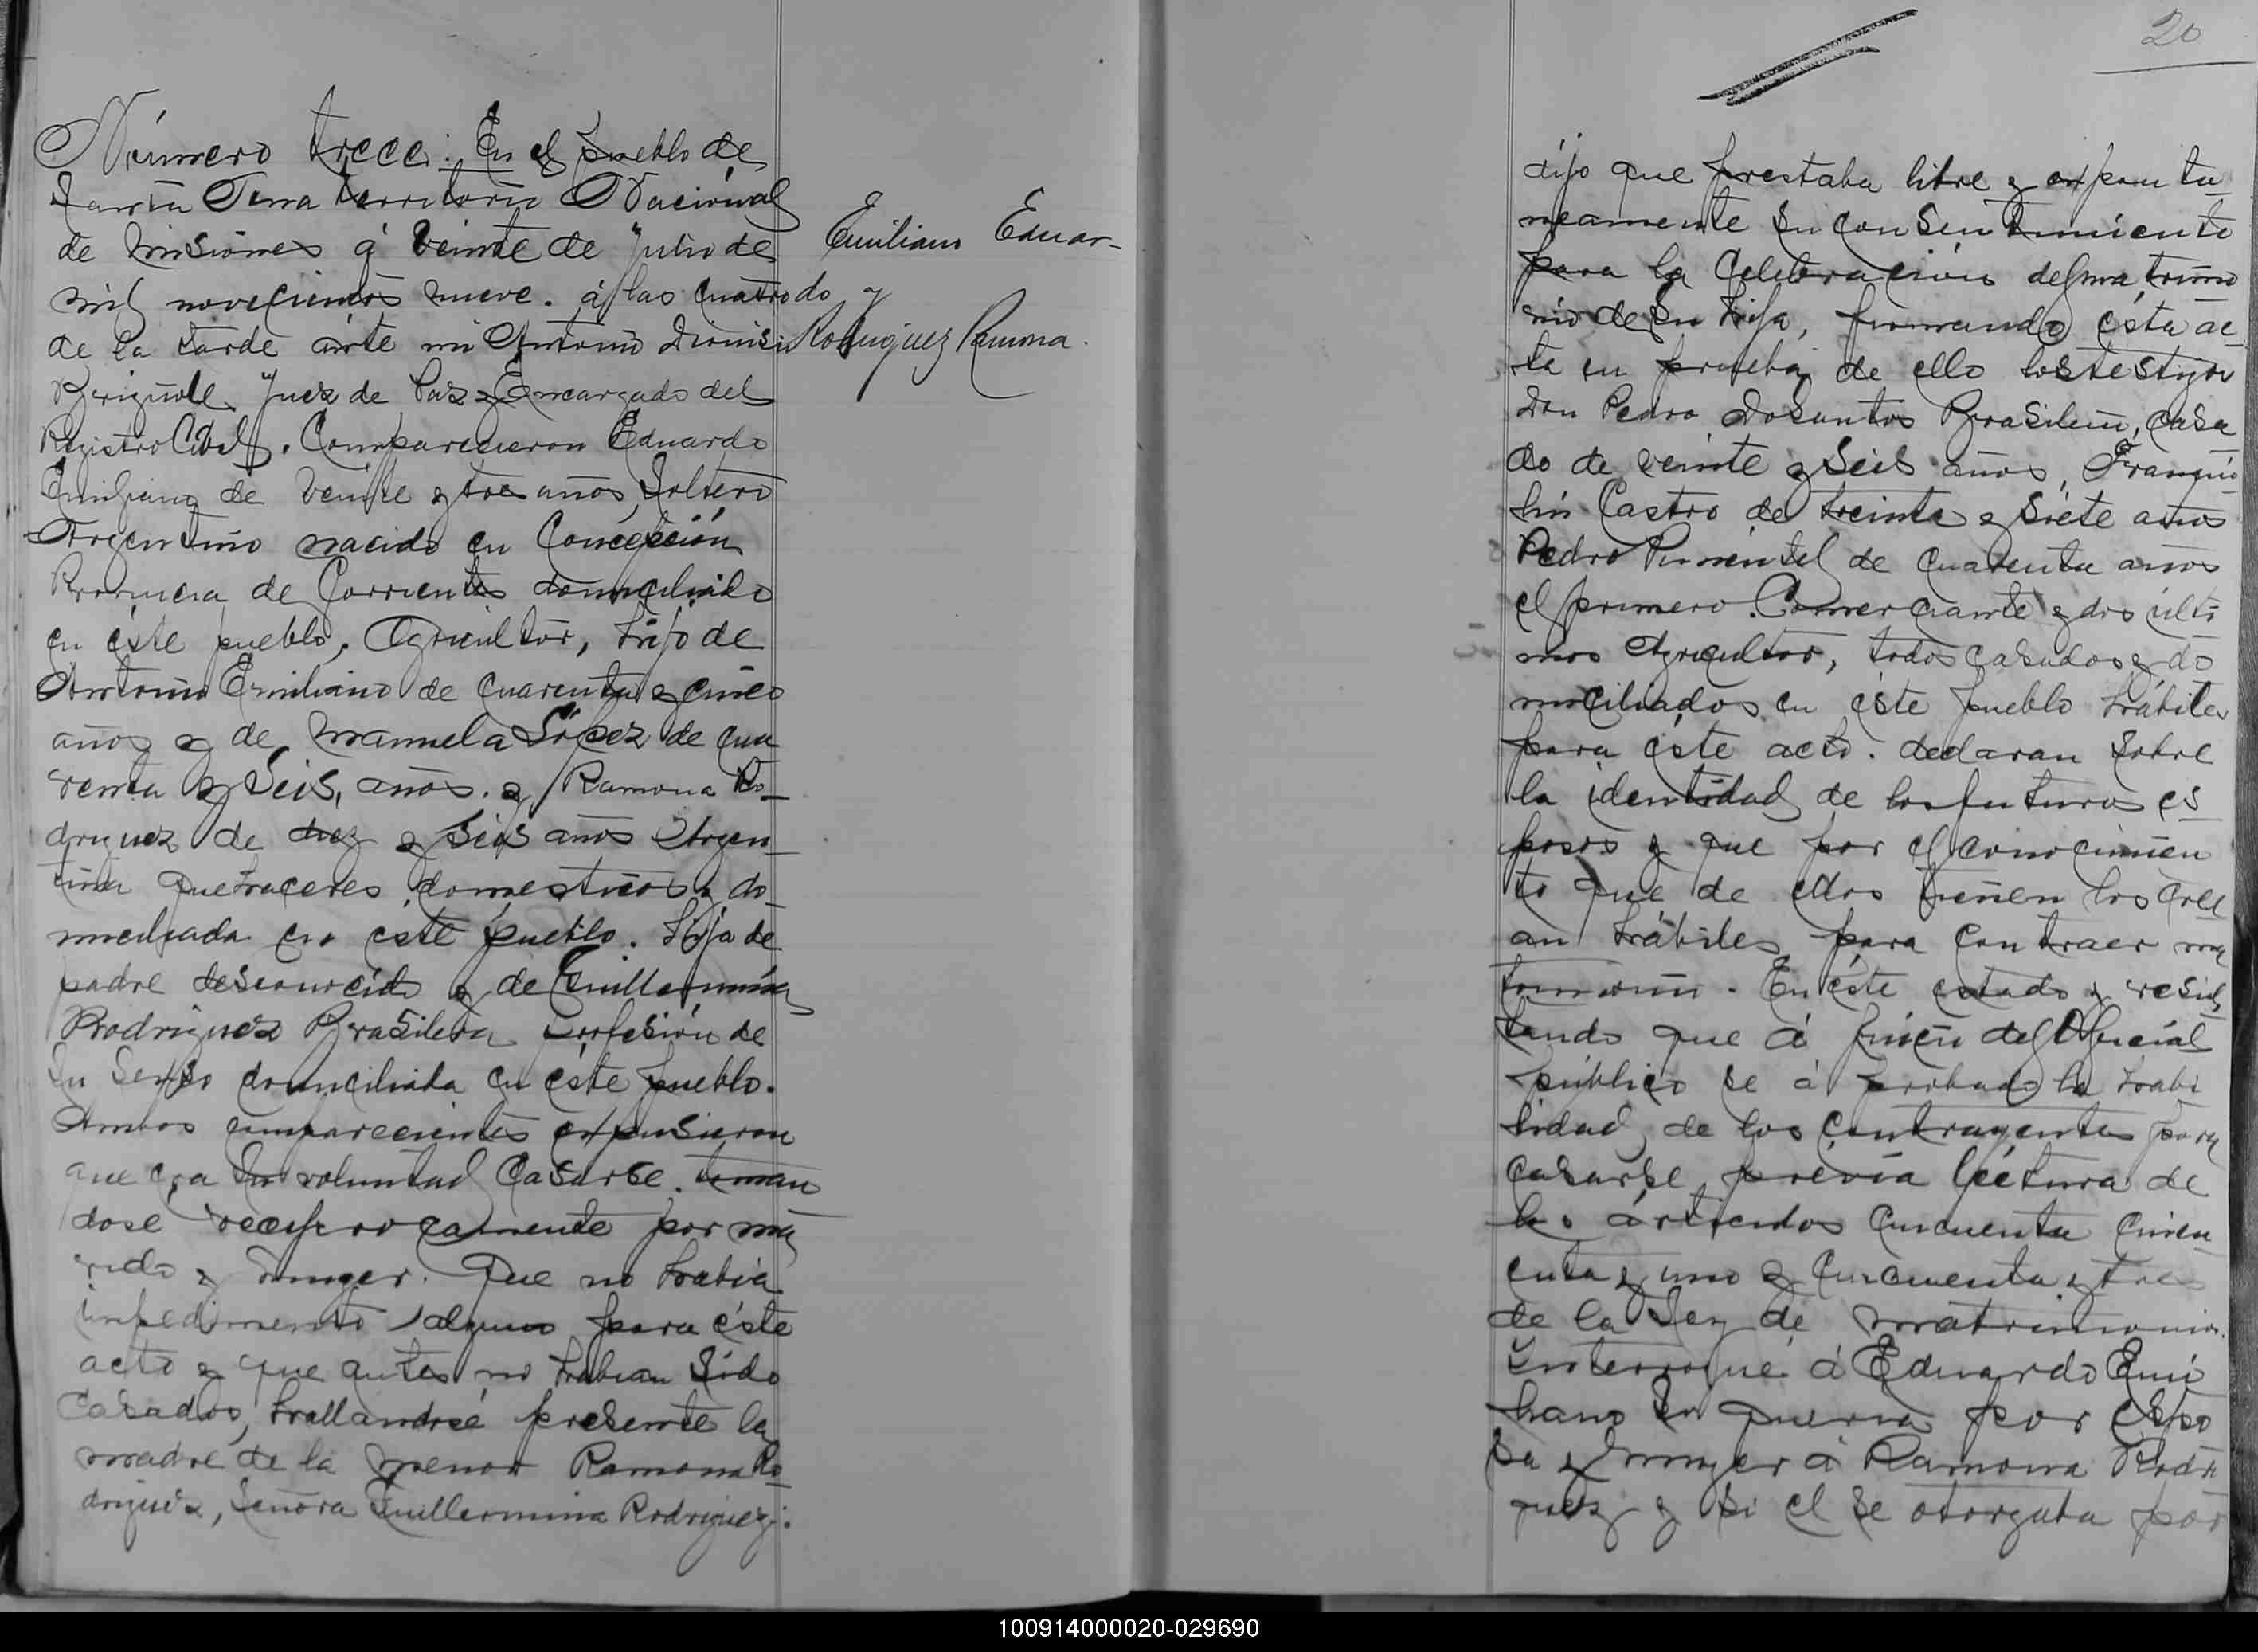 Número trece: En el pueblo de
Santa Ana territorio Nacional
de Misiones á veinte de Julio de
mil novecientos nueve. á las cuatro
de la tarde ante mi Antonio Dionisio
Juez de Paz y Encargado del
Registro Civil. Comparecieron Eduardo
Emiliano de veinte y tres años, Soltero
Argentino nacido en Concepción
Provincia de Corrientes domiciliado
en éste pueblo, Agricultor, hijo de
Antonio Emiliano de cuarenta y cinco
años y de Manuela López de cua
renta y Seis, años. y Ramona Ro-
driguez de diez y seis años Argen-
tina quehaceres domesticos y do-
miciliada en éste pueblo. Hija de
padre desconocido y de Guillermina
Rodriguez Brasilera profesión de
Su Sexso domiciliada en éste pueblo.
Ambos comparecientes expusieron
que era su voluntad Casarse. toman
dose reciprocamente por ma
rido y muger. Que no habia
impedimento alguno para éste
acto y que antes no habian Sido
Casados, hallandose presente la
madre de la menor Ramona Ro-
driguez, Señora Guillermina Rodriguez:
Emiliano Eduar-
do y
Rodriguez Ramona.
20
dijo que prestaba libre y expontu
neamente Su conSentimiento
para la Celebración del matrimo
nio de Su hija, firmando ésta ac-
ta en prueba de ello los testigos
Don Pedro Dosantos Brasilero, casa
do de veinte y Seis años, Franqui-
lin Castro de treinta y Siete años
Pedro Pimentel de cuarenta años
el primero Comerciante y dos ulti
mos Agricultor, todos casados y do
miciliados en éste pueblo hábiles
para éste acto. declaran Sobre
la identidad de los futuros es
posos y que por el conocimien
to que de ellos tienen los cre
an hábiles para contraer ma
trimonio. En éste estado y resul
tando que á juicio del Oficial
público se á probado la habi
lidad de los contrayentes para
casarse previa lectura de
los articulos Cincuenta Cincu
enta y uno y Cincuenta y tres
de la Ley de matrimonio.
Interrogué á Eduardo Emi
liano Si queria por espo
sa y muger á Ramona Rodri
guez y si el se otorgaba por
100914000020-029690